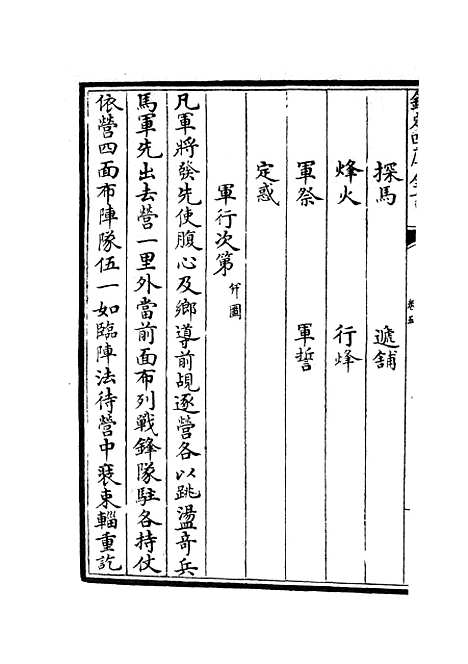 欽定四庫全書
卷五
探馬 遞舖
烽火 行烽
軍祭 軍誓
定惑
軍行次第 并圖
凡軍將發先使腹心及鄉導前覘逐營各以跳盪奇兵
馬軍先出去營一里外當前面布列戰鋒隊駐各持仗
依營四面布陣隊伍一如臨陣法待營中裝束輜重訖